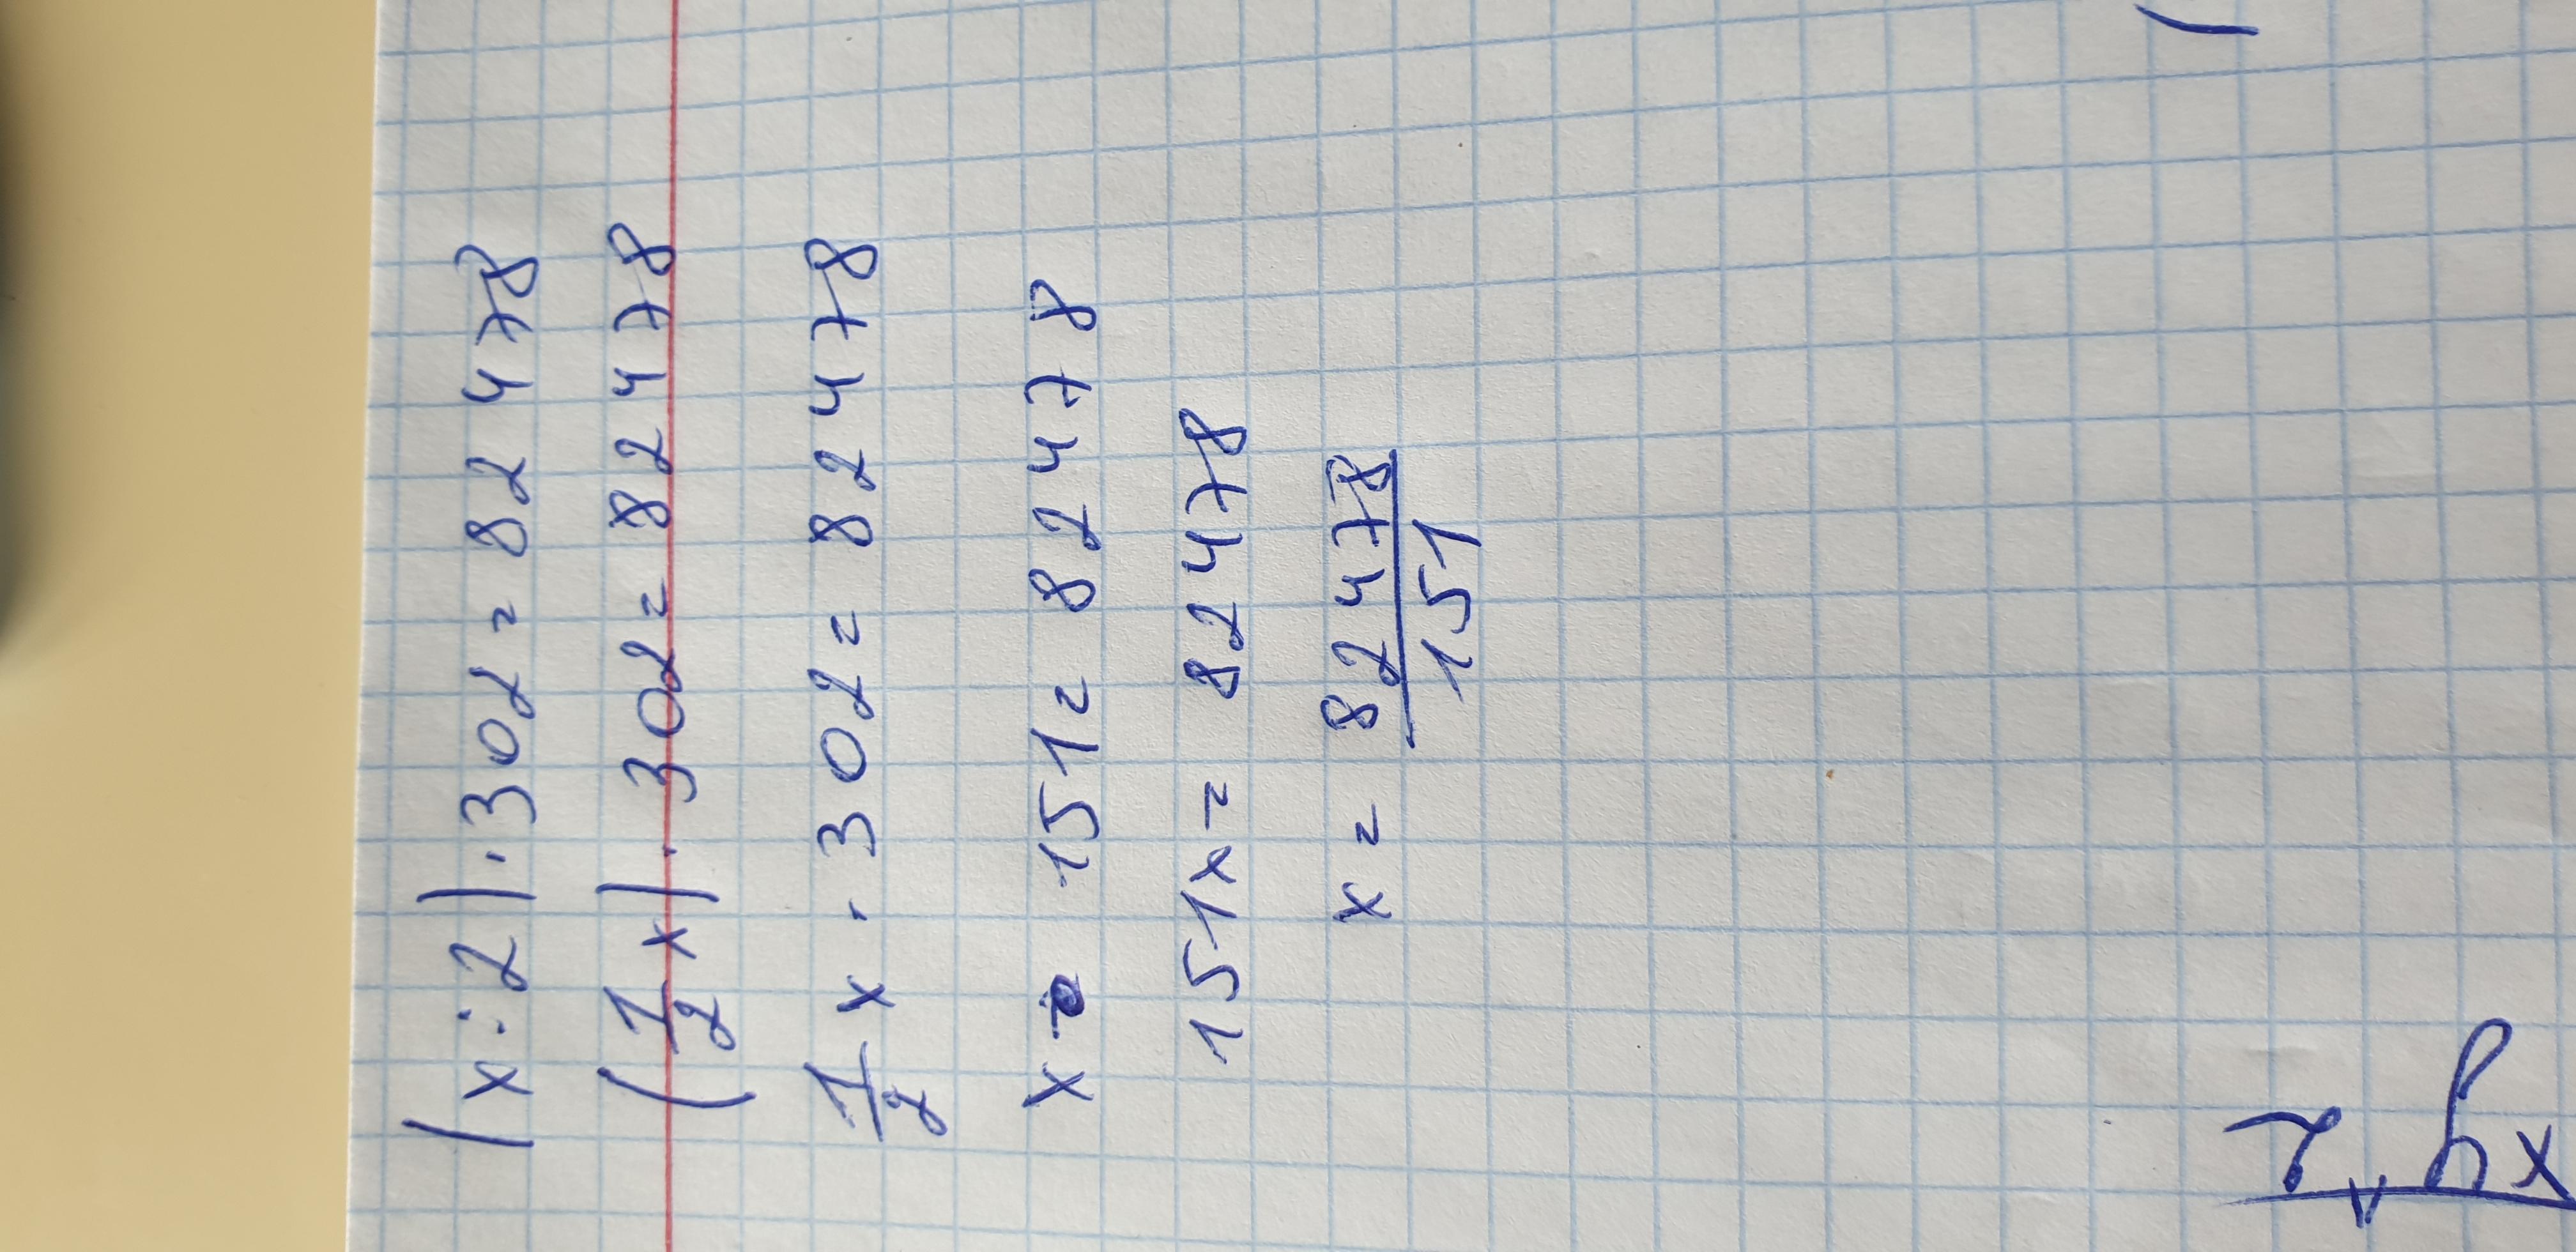 (x:2)·302=82478
(1/2 x)·302=82478
1/2 x·302=82478
x · 151=82478
151x=82478
x=82478/151